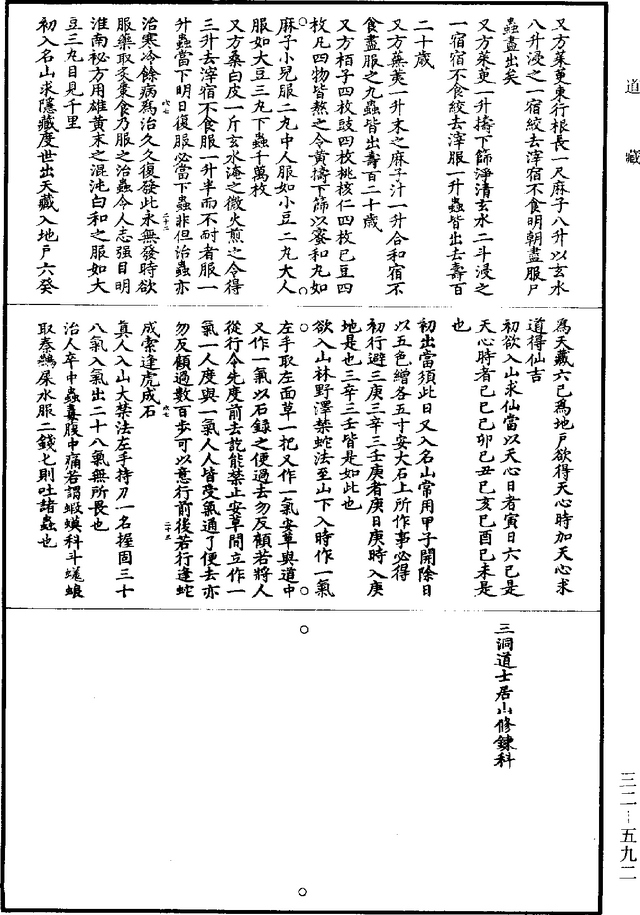 道藏
又方茱萸東行根長一尺麻子八升以玄水
八升浸之一宿絞去滓宿不食明朝盡服尸
蟲盡出矣
又方茱萸一升擣下篩淨清玄水二斗浸之
一宿宿不食絞去滓服一升蟲皆出去壽百
二十歲
又方蕪荑一升末之麻子汁一升合和宿不
食盡服之九蟲皆出壽百二十歲
又方栢子四枚豉四枚桃核仁四枚巴豆四
枚凡四物皆熬之令黃擣下篩以蜜和丸如
麻子小兒服二丸中人服如小豆二丸大人
服如大豆三丸下蟲千萬枚
又方桑白皮一斤玄水淹之微火煎之令得
三升去滓宿不食服一升半而不耐者服一
升蟲當下明日復服必當下蟲非但治蟲亦
治寒冷餘病爲治久久復發此永無發時欲
服藥取炙棗食乃服之治蟲令人志强目明
淮南祕方用雄黃末之混沌白和之服如大
豆三丸目見千里
初入名山求隱藏度世出天藏入地戶六癸
爲天藏六己爲地戶欲得天心時加天心求
道得仙吉
初欲入山求仙當以天心日者寅日六己是
天心時者己巳己卯己丑己亥己酉己未是
也
初出當須此日又入名山常用甲子開除日
以五色繒各五寸安大石上所作事必得
初行避三庚三辛三壬庚者庚日庚時入庚
地是也三辛三壬皆是如此也
欲入山林野澤禁蛇法至山下入時作一氣
左手取左面草一把又作一氣安草與道中
又作一氣以石鎮之便過去勿反顧若將人
從行令先度前去訖能禁止安草間立作一
氣一人度與一氣人人皆受氣通了便去亦
勿反顧過數百步可以意行前後若行逢蛇
成索逢虎成石
真人入山大禁法左手持刀一名握固三十
八氣入氣出二十八氣無所畏也
治人卒中蟲毒腹中痛若謂蝦蟆科斗蜣蜋
取秦鷰屎水服二錢七則吐諸蟲也
三洞道士居山修鍊科
三二—五九二